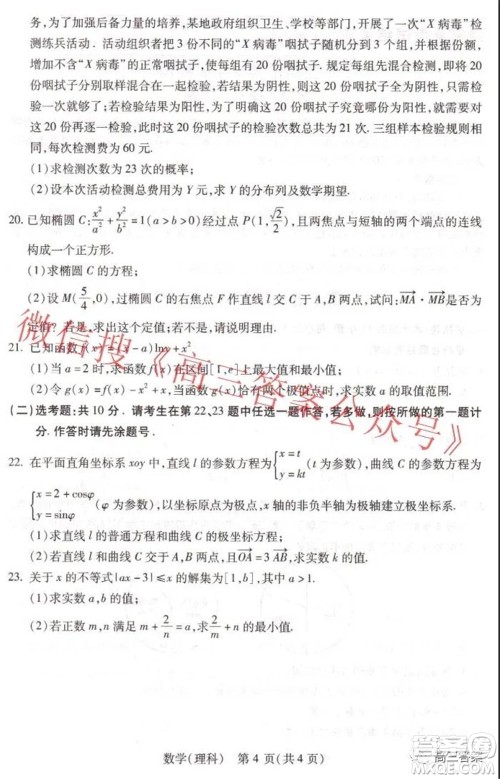 务. 为加强后备力量的培养，某地政府组织卫生、学校等部门，开展了一次“X 病毒”检
测练兵活动. 活动组织者把 3 份不同的“X 病毒”咽拭子随机分到 3 个组，并按份额，
当地不含“X 病毒”的正常咽拭子，使每组为 20 份咽拭子. 规定每组先混合检测，即将
20 份咽拭子分别取样混合在一起检验，若结果为阴性，则这 20 份咽拭子全为阴性，
因而只需检验一次；若检验结果为阳性，为了明确咽拭子究竟哪份为阳性，就需要对
这 20 份再逐一检验，此时这 20 份咽拭子的检验次数总共为 21 次. 三组样本井水不犯
序，每次检测费为 60 元.
(1)求检测次数为 23 次的概率；
(2)设本次活动检测总费用为 Y 元，求 Y 的分布列及数学期望.
20. 已知椭圆 C: x²/a² + y²/b² = 1(a>b>0)经过点 P(1, √2/2)，且两焦点与短轴的两个端点的连线
构成一个正方形.
(1)求椭圆 C 的方程；
(2)设 M(5/4, 0)，过椭圆 C 的右焦点 F 作直线 l 交椭圆 C 于 A、B 两点，试问：MA · MB是否为
定值？若是，求出这个定值；若不是，请说明理由.
21. 已知函数 f(x) a)lnx+x².
(1)当 a=2 时，求函数 f(x)在区间[1, 上的最大值；
(2)令 g(x)=f(x)-x²+x，若函数 g(x) 求实数 a 的取值范围.
(二)选考题：共 10 分. 请考生在第 22、23 题中任选一题作答，若多做，则按所做的第一题计
分. 作答时请先涂题号.
22. 在平面直角坐标系 xoy 中，直线 l 的参数方程为 {x=t y=kt (t 为参数)，曲线 C 的参数方程为
{x=2+cosφ y=sinφ (φ 为参数)，以坐标原点为极点，x 轴的非负半轴为极轴建立极坐标系.
(1)求直线 l 的普通方程和曲线 C 的极坐标方程；
(2)若直线 l 和曲线 C 交于 A、B 两点，且OA=3 AB，求实数 k 的值.
23. 关于 x 的不等式|ax-3|≤x 的解集为[1,b]，其中 a>1.
(1)求实数 a、b 的值；
(2)若正数 m,n 满足 m+2/n=a，求2/m+n 的最小值.
数学(理科) 第 4 页(共 4 页)
微信搜《高三答案公众号》
高三答案